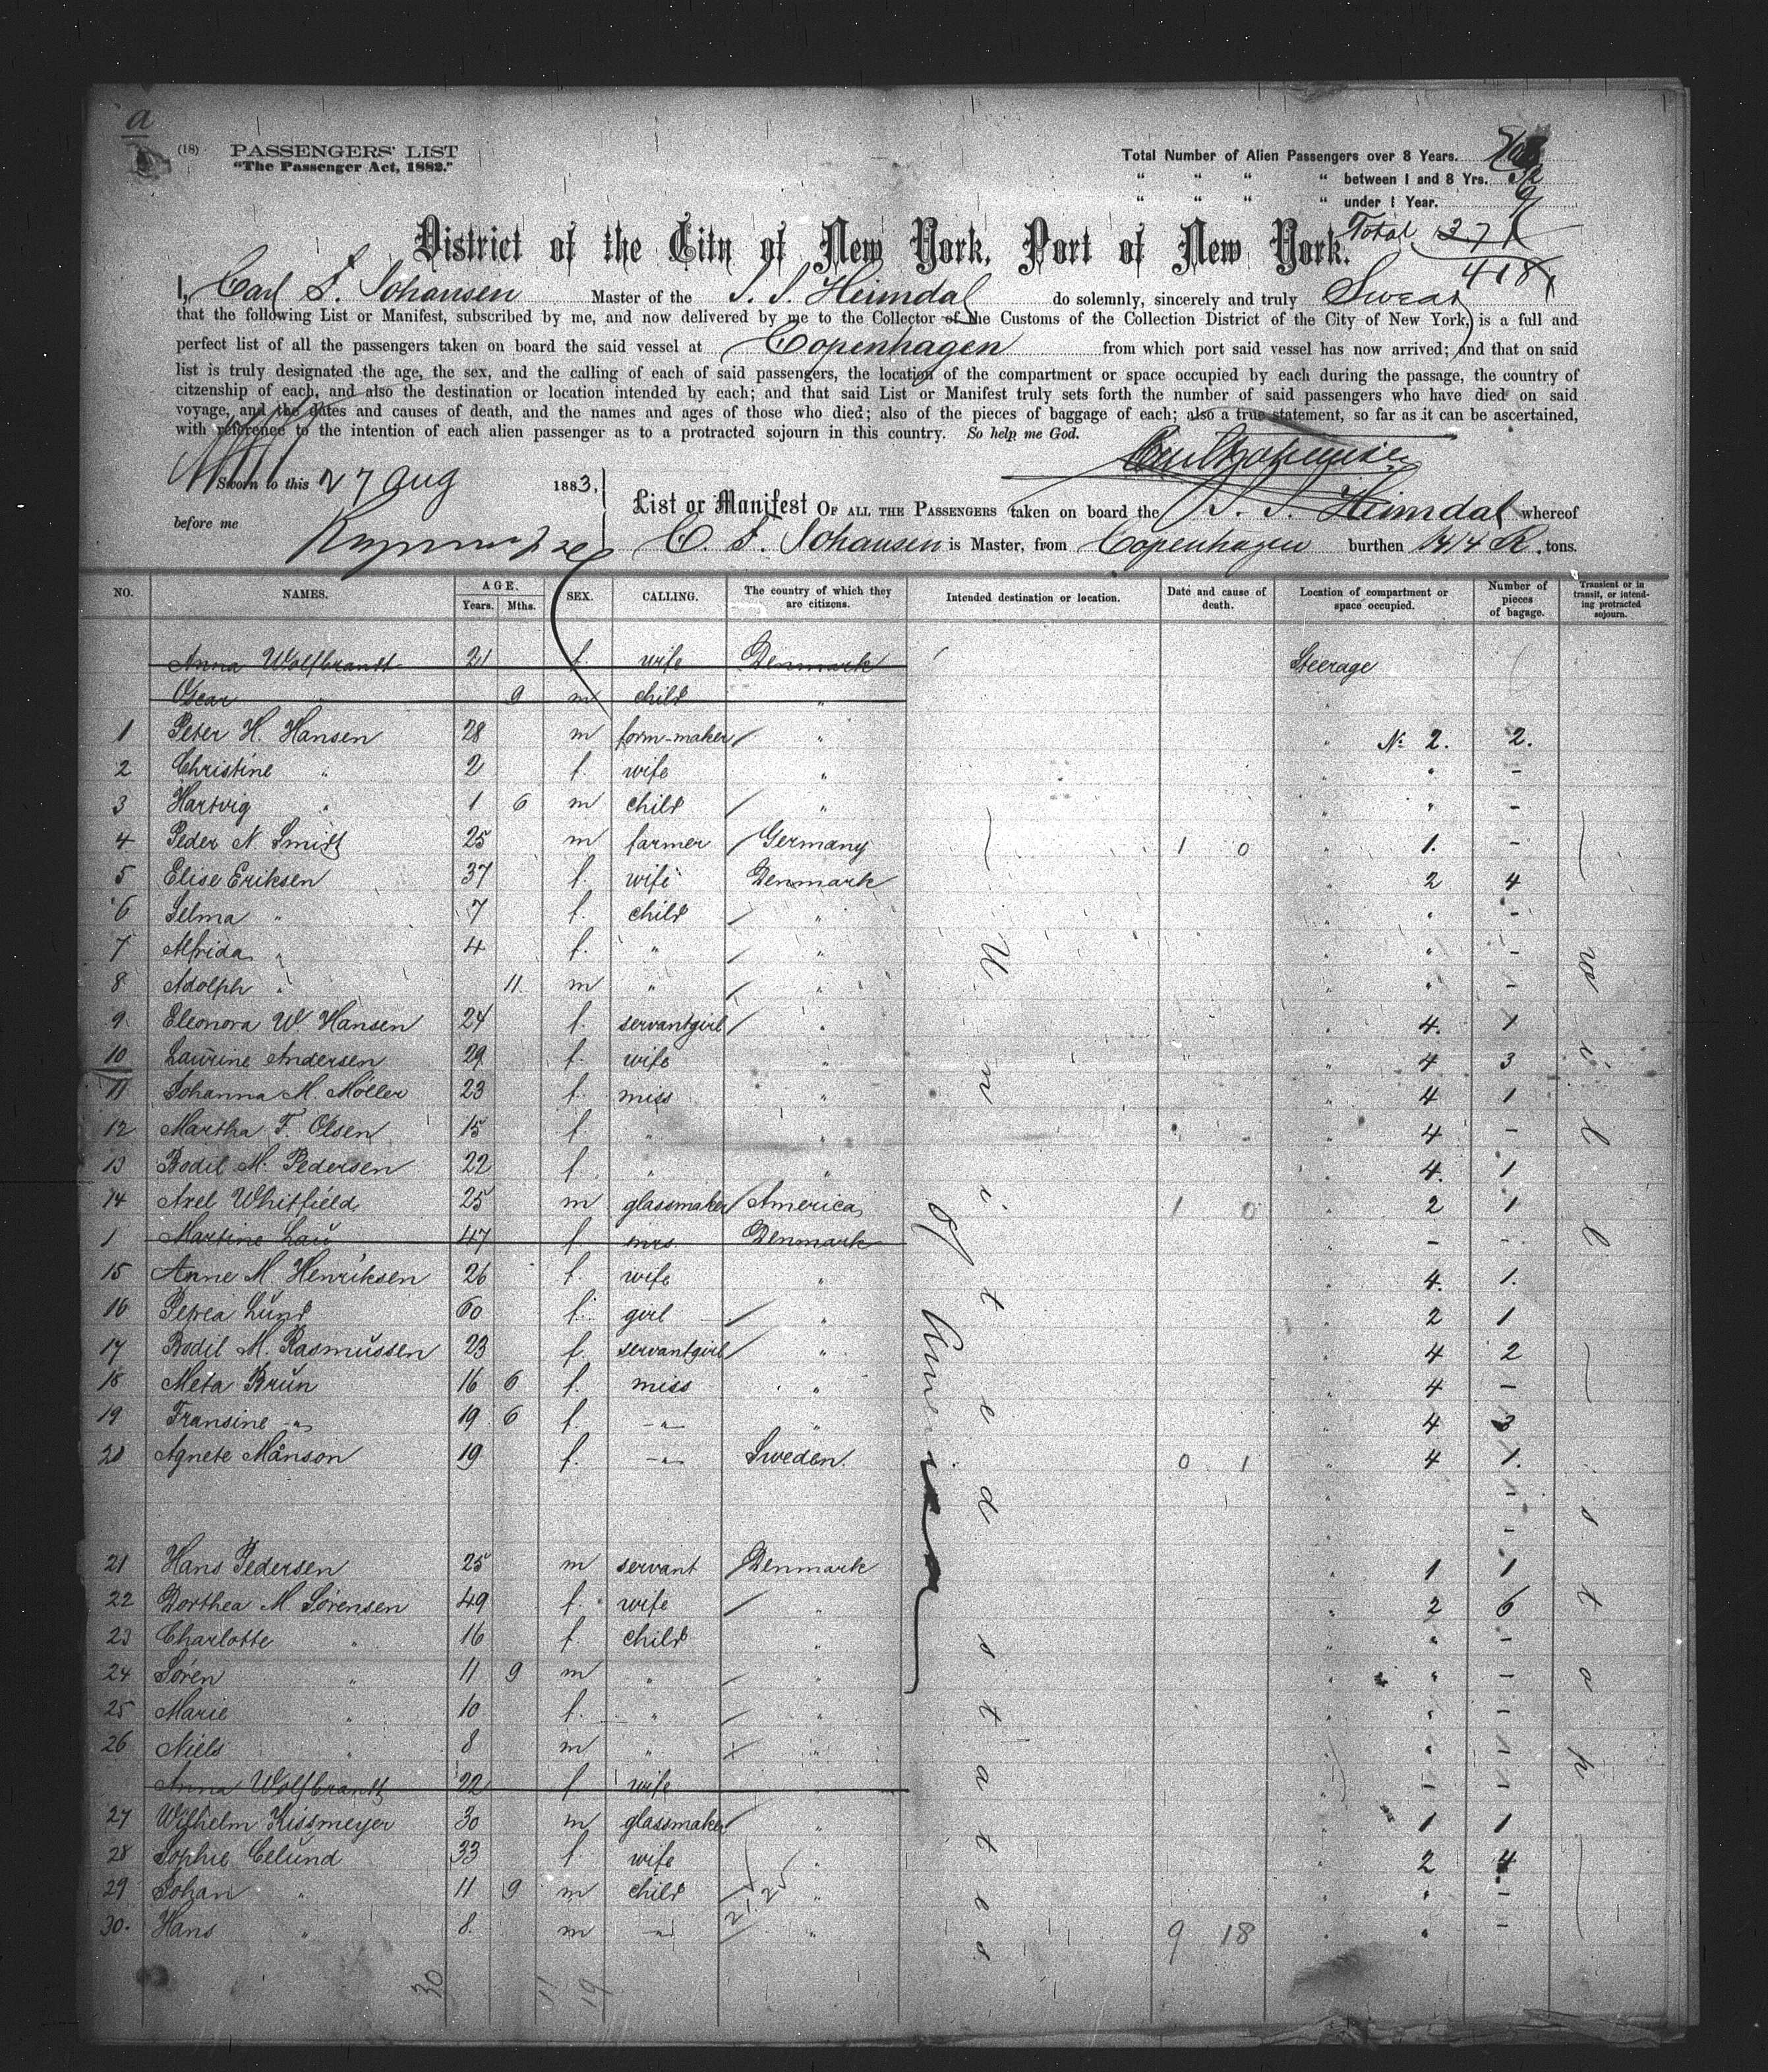 a
(18) PASSENGERS' LIST
"The Passenger Act, 1882."
Total Number of Alien Passengers over 8 Years.
" " " " between 1 and 8 Yrs.
" " " " under 1 Year.
Total 271
418
District of the City of New York, Port of New York.
I, Carl F. Johansen Master of the S. S. Heimdal do solemnly, sincerely and truly Swear
that the following List or Manifest, subscribed by me, and now delivered by me to the Collector of the Customs of the Collection District of the City of New York, is a full and
perfect list of all the passengers taken on board the said vessel at Copenhagen from which port said vessel has now arrived; and that on said
list is truly designated the age, the sex, and the calling of each of said passengers, the location of the compartment or space occupied by each during the passage, the country of
citzenship of each, and also the destination or location intended by each; and that said List or Manifest truly sets forth the number of said passengers who have died on said
voyage, and the dates and causes of death, and the names and ages of those who died; also of the pieces of baggage of each; also a true statement, so far as it can be ascertained,
with reference to the intention of each alien passenger as to a protracted sojourn in this country. So help me God.
Sworn to this 27 Aug 1883,
before me
List or Manifest OF ALL THE PASSENGERS taken on board the S. S. Heimdal whereof
C. F. Johansen is Master, from Copenhagen burthen 1414 R. tons.
NO. NAMES. AGE. Years. Mths. SEX. CALLING. The country of which they are citizens. Intended destination or location. Date and cause of death. Location of compartment or space occupied. Number of pieces of bagage. Transient or in transit, or intending protracted sojourn.
Anna Wolfbrandt 21 f. wife Denmark Steerage
Oscar " 9 m child " "
1 Peter H. Hansen 28 m form-maker " " No 2. 2.
2 Christine " 2 f. wife " " -
3 Hartvig " 1 6 m child " " " -
4 Peder N. Smidt 25 m farmer Germany 1 0 " 1. -
5 Elise Eriksen 37 f. wife Denmark " 2 4
6 Selma " 7 f. child " " " -
7 Alfrida " 4 f. " " " -
8 Adolph " 11 m " " " " -
9 Eleonora W. Hansen 24 f. servantgirl " " 4. 1
10 Laurine Andersen 29 f. wife " " 4 3
11 Johanna M. Möller 23 f. miss " " 4 1
12 Martha F. Olsen 15 f. " " " 4 -
13 Bodil M. Pedersen 22 f " " " 4. 1
14 Axel Whitfield 25 m glassmaker America 1 0 " 2 1
1 Martine Lau 47 f mrs Denmark " - -
15 Anne M. Henriksen 26 f. wife " " 4. 1.
16 Petrea Lund 60 f. girl " " 2 1
17 Bodil M. Rasmussen 23 f. servantgirl " " 4 2
18 Meta Brun 16 6 f. miss " " 4 -
19 Fransine -"- 19 6 f. -"- " " 4 3
20 Agnete Månson 19 f. -"- Sweden. 0 1 " 4 1.
" -
" -
21 Hans Pedersen 25 m servant Denmark " 1 1
22 Dorthea M. Sörensen 49 f. wife " " 2 6
23 Charlotte " 16 f. child " " " -
24 Sören " 11 9 m " " " " -
25 Marie " 10 f. " " " " -
26 Niels " 8 m " " " -
Anna Wolfbrandt 22 f wife " - -
27 Wilhelm Kissmeyer 30 m glassmaker " " 1 1
28 Sophie Celund 33 f wife " " 2 4
29 Johan " 11 9 m child " " " -
30. Hans " 8. m -"- " 9 18 " " -
30 11 19
United States
of America
will stay